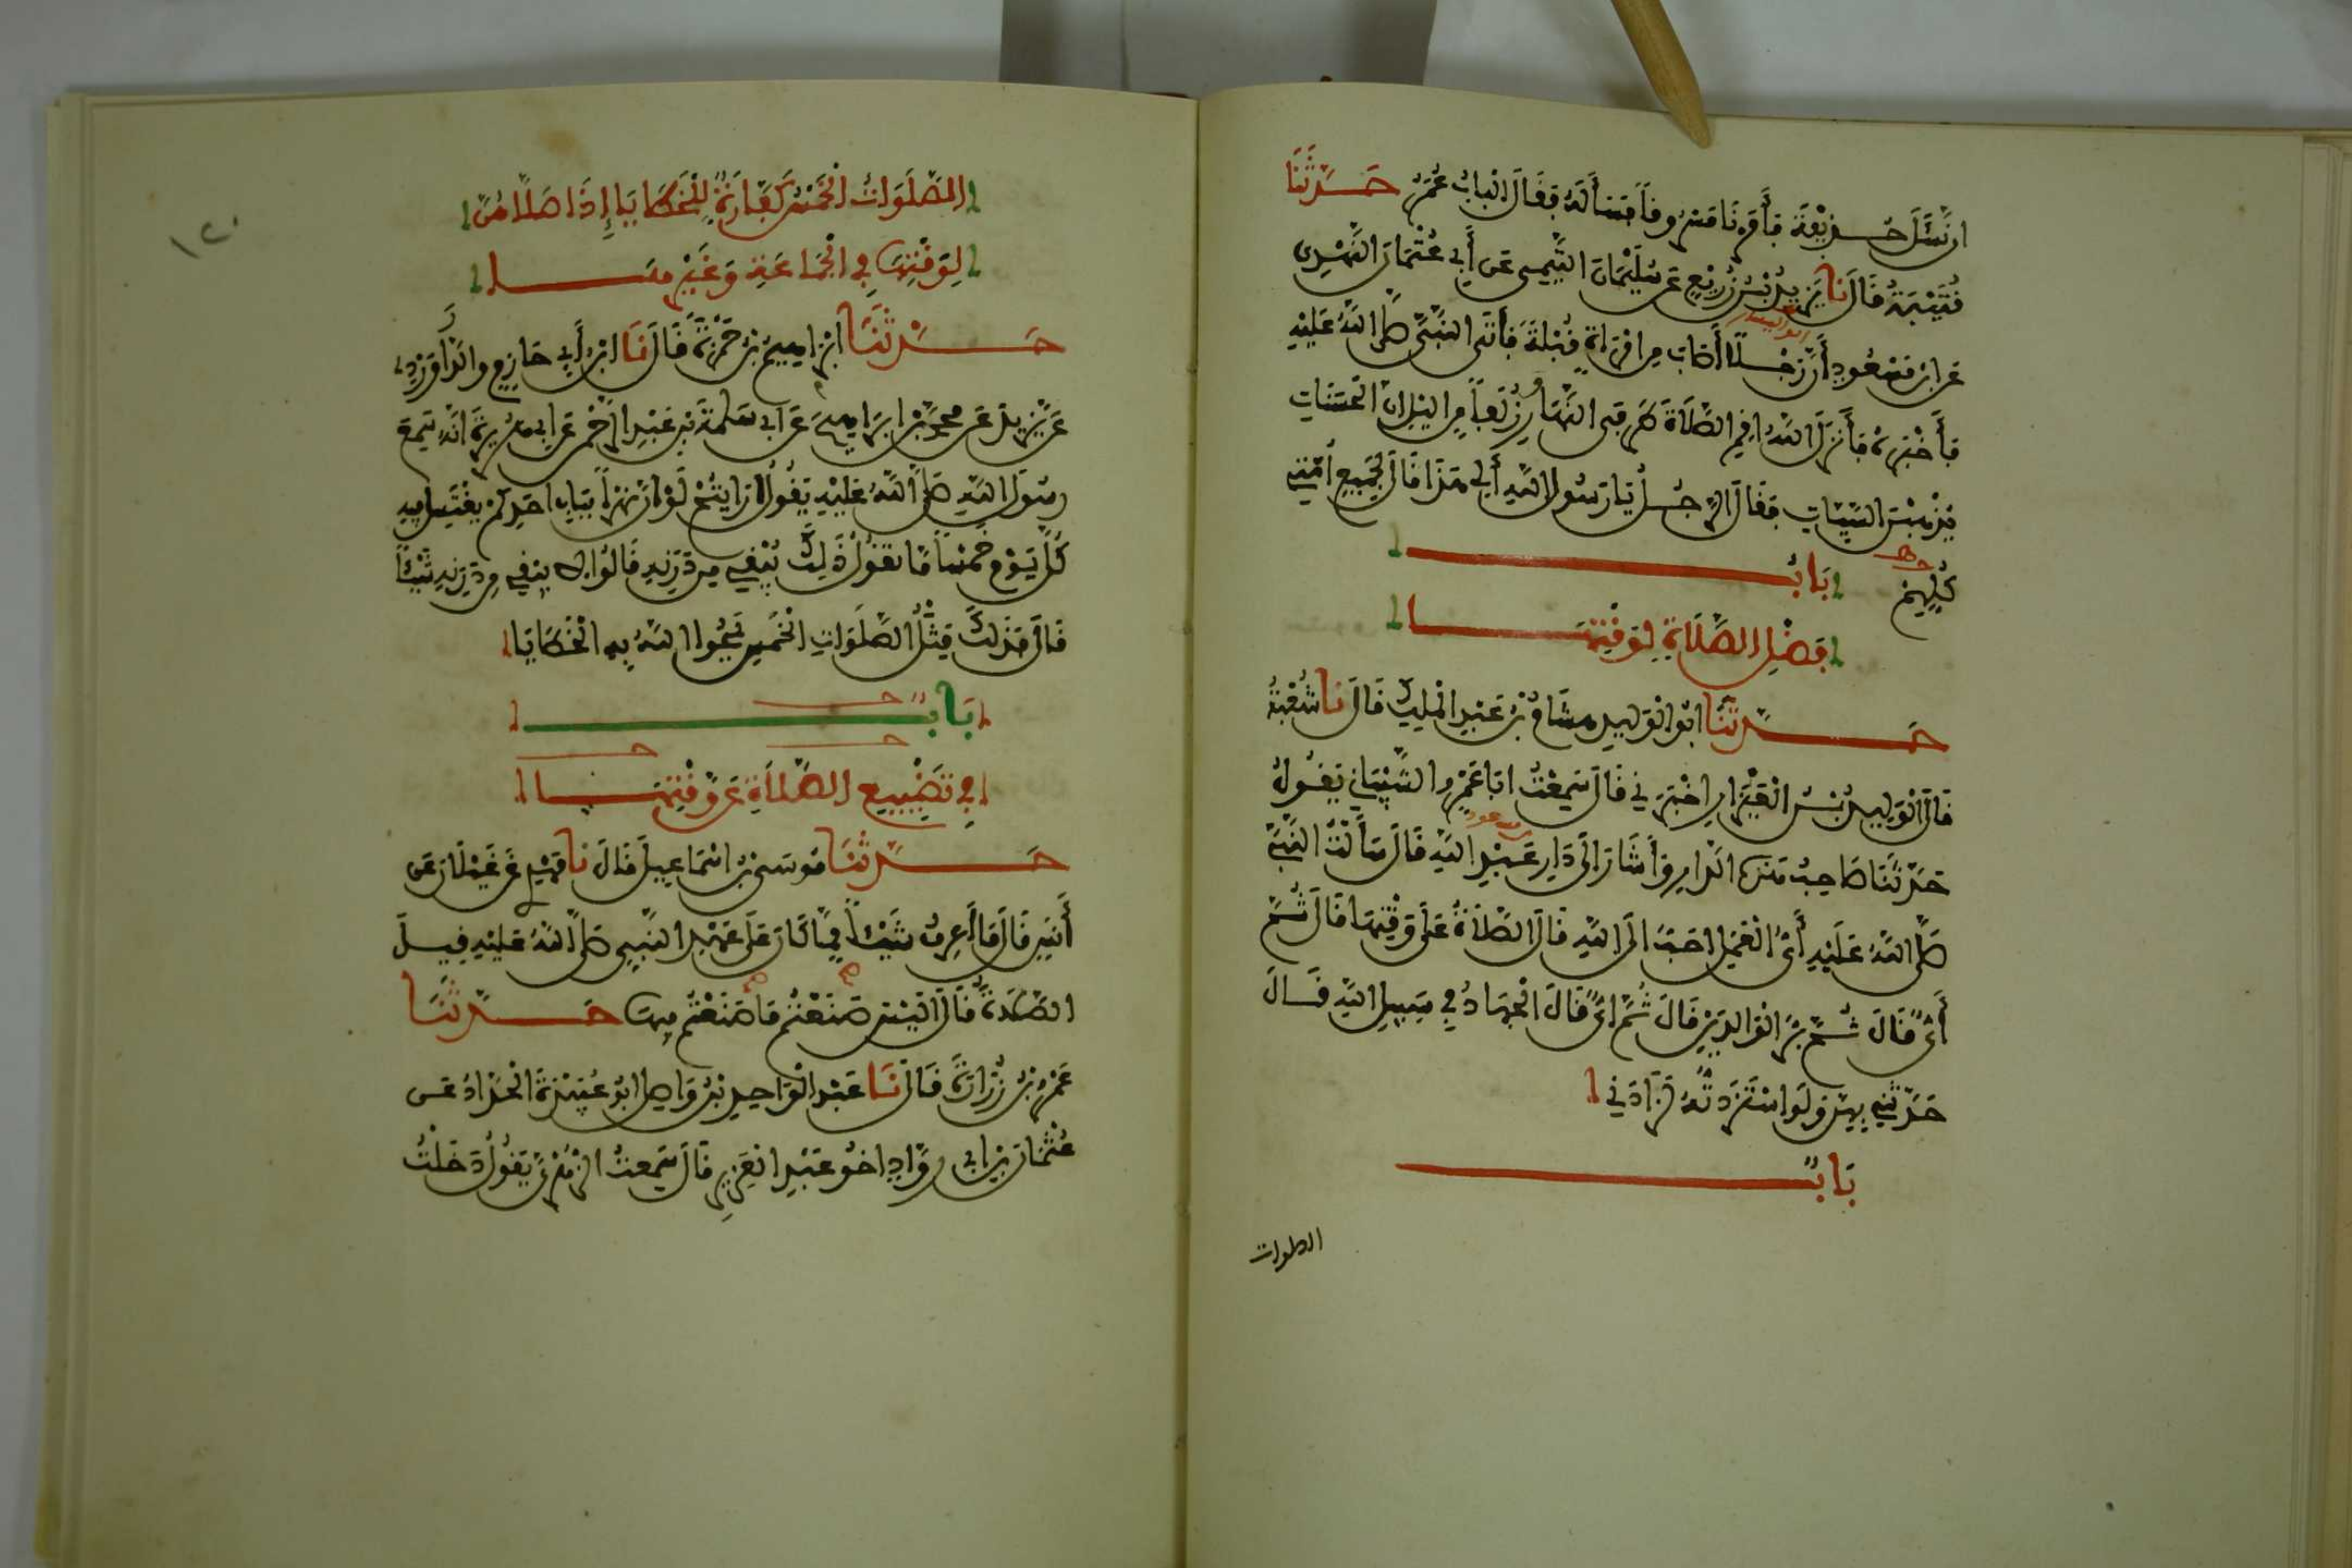 ان نسئل حذيفة فأمرنا مسروقا فسأله فقال الباب عمر حدثنا
قتيبة قال نا يزيد بن زريع عن سليمان التيمي عن أبي عثمان النهدي
عن ابن مسعود أن رجلا أصاب من امرأة قبلة فأتى النبي صلى الله عليه
أبو اليسر
فأخبره فأنزل الله أقم الصلاة طرفي النهار وزلفا من اليل ان الحسنات
يذهبن السيئات فقال الرجل يا رسول الله ألي هذا قال لجميع أمتي
كلهم
باب
فضل الصلاة لوقتها
حدثنا ابو الوليد هشام بن عبد الملك قال نا شعبة
قال الوليد بن العيزار اخبرني قال سمعت ابا عمرو الشيباني يقول
حدثنا صاحب هذه الدار وأشار الى دار عبد الله قال سألت النبي
بن مسعود
صلى الله عليه أي العمل احب الى الله قال الصلاة على وقتها قال ثم
أي قال ثم بر الوالدين قال ثم اي قال الجهاد في سبيل الله قال
حدثني بهن ولو استزدته لزادني
باب
الصلوات
١٢٠
الصلوات الخمس كفارة للخطايا إذا صلاهن
لوقتها في الجماعة وغيرها
حدثنا ابراهيم بن حمزة قال نا ابن أبي حازم والدراوردي
عن يزيد عن محمد بن ابراهيم عن ابي سلمة بن عبد الرحمن عن ابي هريرة انه سمع
رسول الله صلى الله عليه يقول ارايتم لو ان نهرا بباب احدكم يغتسل فيه
كل يوم خمسا ما تقول ذلك يبقي من درنه قالوا لا يبقي من درنه شيئا
قال فذلك مثل الصلوات الخمس يمحوا الله به الخطايا
باب
في تضييع الصلاة عن وقتها
حدثنا موسى بن اسماعيل قال نا مهدي عن غيلان عن
أنس قال ما أعرف شيئا مما كان على عهد النبي صلى الله عليه قيل
الصلاة قال اليس صنعتم ما صنعتم فيها حدثنا
عمرو بن زرارة قال نا عبد الواحد بن واصل ابو عبيدة الحداد عن
عثمان بن ابي رواد اخو عبد العزيز قال سمعت الزهري يقول دخلت